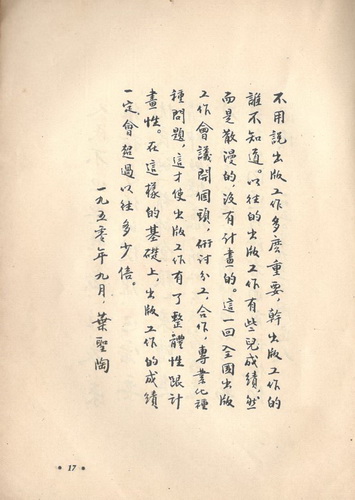 不用說出版工作多麼重要，幹出版工作的
誰不知道。以往的出版工作有些兒成績，然
而是散漫的，沒有計畫的。這一回全國出版
工作會議開個頭，研討分工，合作，專業化種
種問題，這才使出版工作有了整體性跟計
畫性。在這樣的基礎上，出版工作的成績
一定會超過以往多少倍。
一九五零年九月，葉聖陶
• 17 •